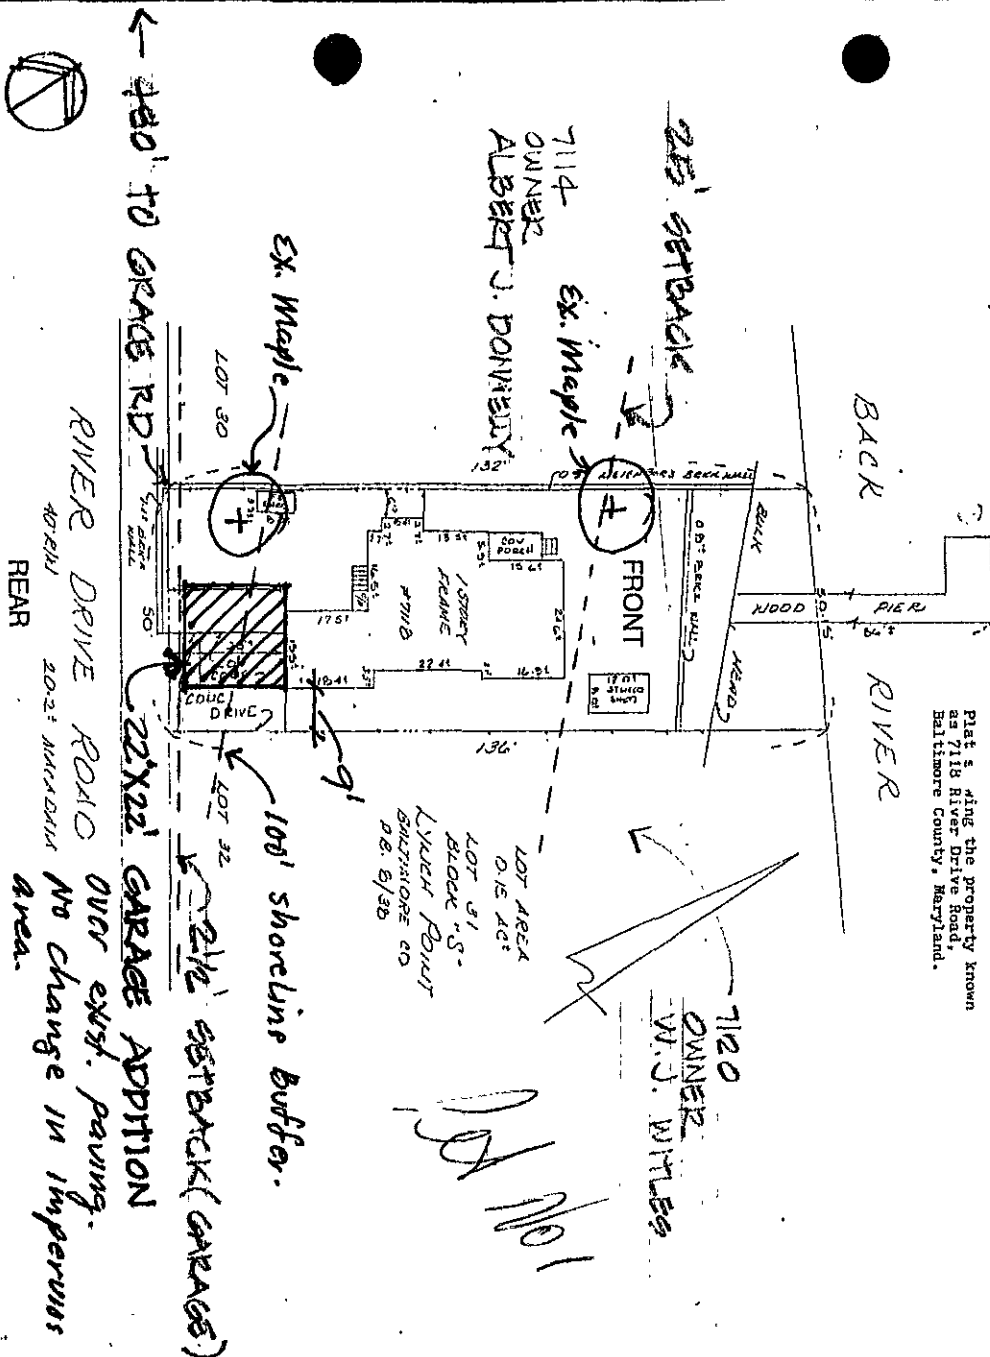 Plat s wing the property known
as 7118 River Drive Road,
Baltimore County, Maryland.
BACK RIVER
WOOD PIER
BULK HEAD
25' SETBACK
7114
OWNER
ALBERT J. DONNELLY
7120
OWNER
W.J. WITLES
Ex. Maple
FRONT
132'
136'
COV
PORCH
1 STORY
FRAME
#7118
LOT AREA
0.15 AC±
LOT 31
BLOCK "S"
LYNCH POINT
BALTIMORE CO
P.B. 8/38
Ex. Maple
LOT 30
LOT 32
CONC
DRIVE
9'
100' shoreline buffer.
2 1/2' SETBACK (GARAGE)
22'X22' GARAGE ADDITION
over exist. paving.
No change in impervus
area.
180' TO GRACE RD
50'
RIVER DRIVE ROAD
40' R/W
20.2± MACADAM
REAR
No 1